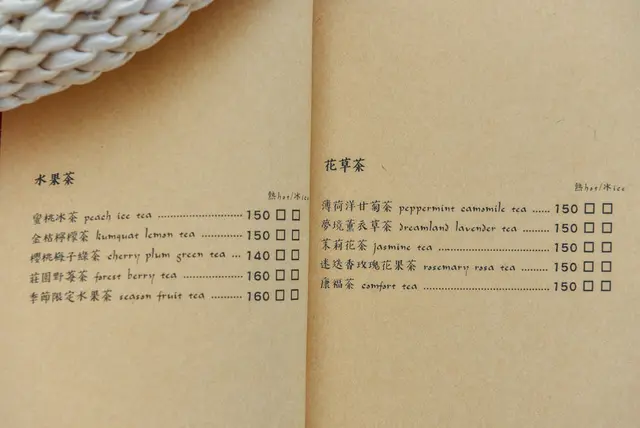 水果茶
熱hot/冰ice
蜜桃冰茶 peach ice tea ........................ 150 □ □
金桔檸檬茶 kumquat lemon tea ............ 150 □ □
櫻桃梅子綠茶 cherry plum green tea ... 140 □ □
莊園野莓茶 forest berry tea .................. 160 □ □
季節限定水果茶 season fruit tea .......... 160 □ □
花草茶
熱hot/冰ice
薄荷洋甘菊茶 peppermint camomile tea ..... 150 □ □
夢境薰衣草茶 dreamland lavender tea ......... 150 □ □
茉莉花茶 jasmine tea ................................ 150 □ □
迷迭香玫瑰花果茶 rosemary rosa tea .......... 150 □ □
康福茶 comfort tea .................................... 150 □ □